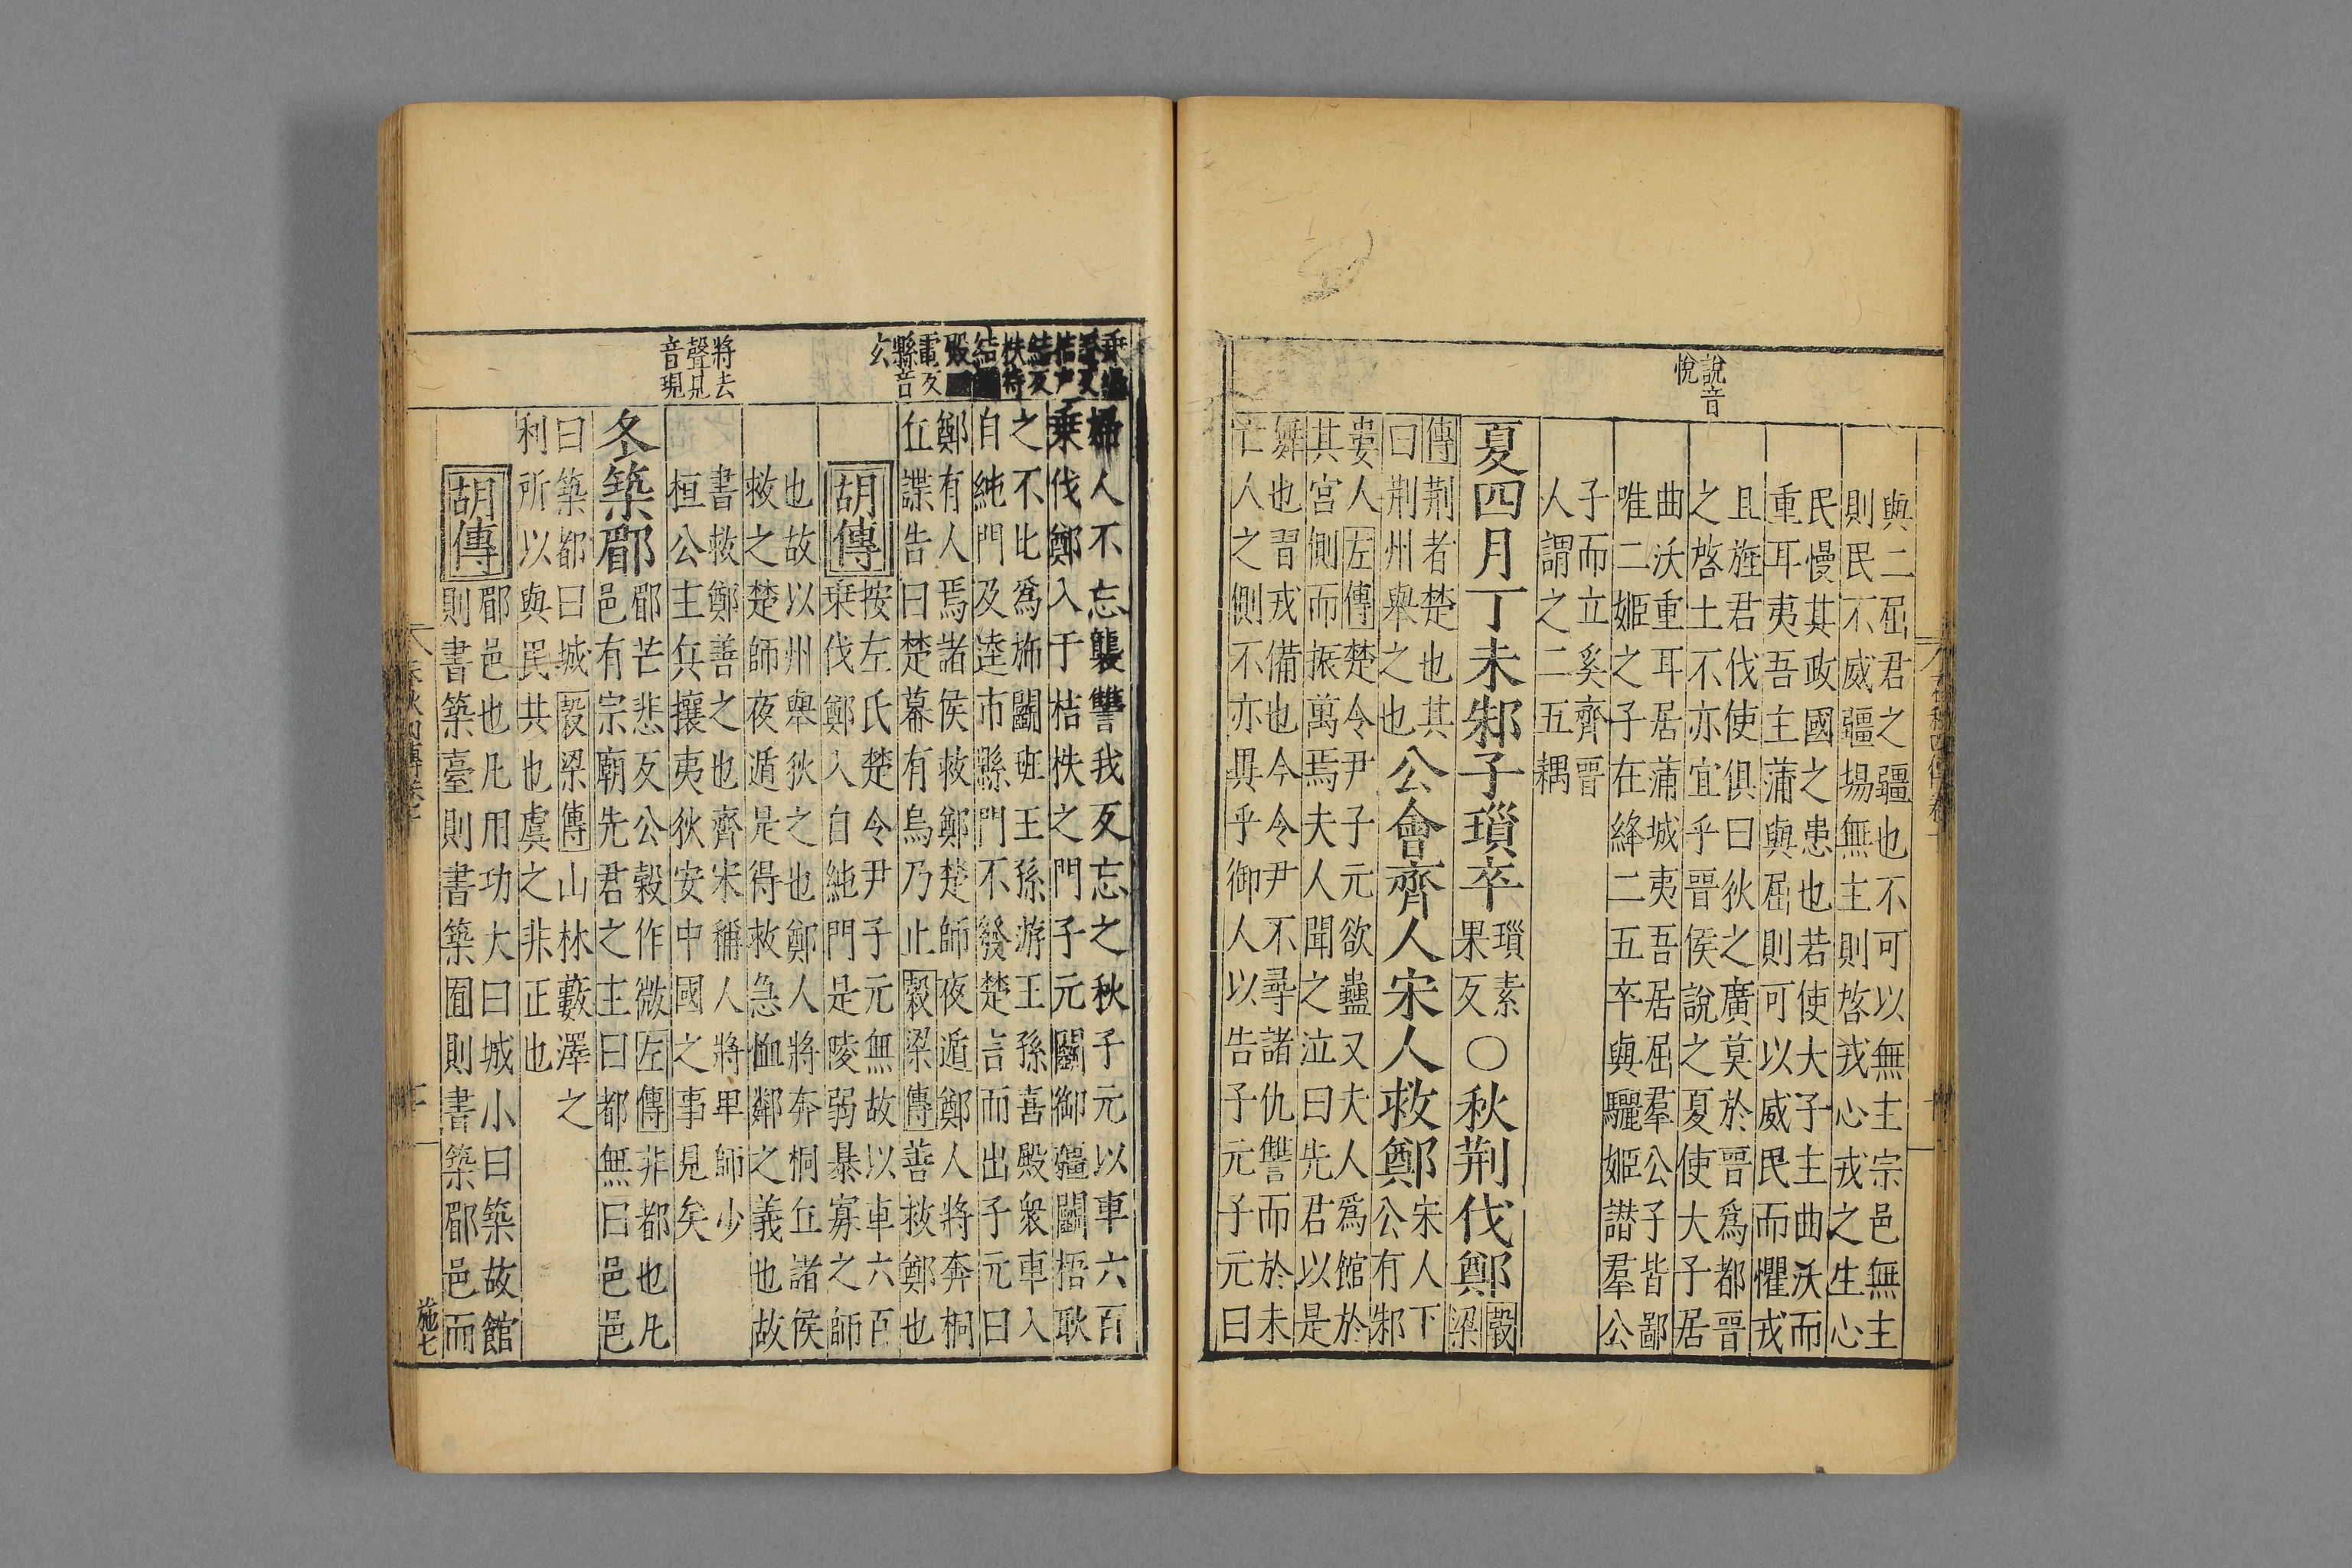 說音
悅
與二屈君之疆也不可以無主宗邑無主
則民不威疆場無主則啓戎心戎之生心
民慢其政國之患也若使大子主曲沃而
重耳夷吾主蒲與屈則可以威民而懼戎
且旌君伐使俱曰狄之廣莫於晉爲都晉
之啓土不亦宜乎晉侯說之夏使大子居
曲沃重耳居蒲城夷吾居屈羣公子皆鄙
唯二姬之子在絳二五卒與驪姬譖羣公
子而立奚齊晉
人謂之二五耦
夏四月丁未邾子瑣卒瑣素果反○秋荆伐鄭穀梁
傳荆者楚也其曰荆州舉之也公會齊人宋人救鄭宋人下公有邾
婁人左傳楚令尹子元欲蠱文夫人爲館於
其宮側而振萬焉夫人聞之泣曰先君以是
舞也習戎備也今令尹不尋諸仇讐而於未
亡人之側不亦異乎御人以告子元子元曰
電反
縣音
玄
將去
聲見
音現
婦人不忘襲讐我反忘之秋子元以車六百
乗伐鄭入于桔柣之門子元鬭御疆鬭梧耿
之不比爲旆鬭班王孫游王孫喜殿衆車入
自純門及逵市縣門不發楚言而出子元曰
鄭有人焉諸侯救鄭楚師夜遁鄭人將奔桐
丘諜告曰楚幕有烏乃止穀梁傳善救鄭也
胡傳按左氏楚令尹子元無故以車六百
乗伐鄭入自純門是陵弱暴寡之師
也故以州舉狄之也鄭人將奔桐丘諸侯
救之楚師夜遁是得救急恤鄰之義也故
書救鄭善之也齊宋稱人將卑師少
桓公主兵攘夷狄安中國之事見矣
冬築郿郿芒悲反公穀作微左傳非都也凡
邑有宗廟先君之主曰都無曰邑邑
曰築都曰城穀梁傳山林藪澤之
利所以與民共也虞之非正也
胡傳郿邑也凡用功大曰城小曰築故館
則書築臺則書築囿則書築郿邑而
春秋四傳卷七
施七